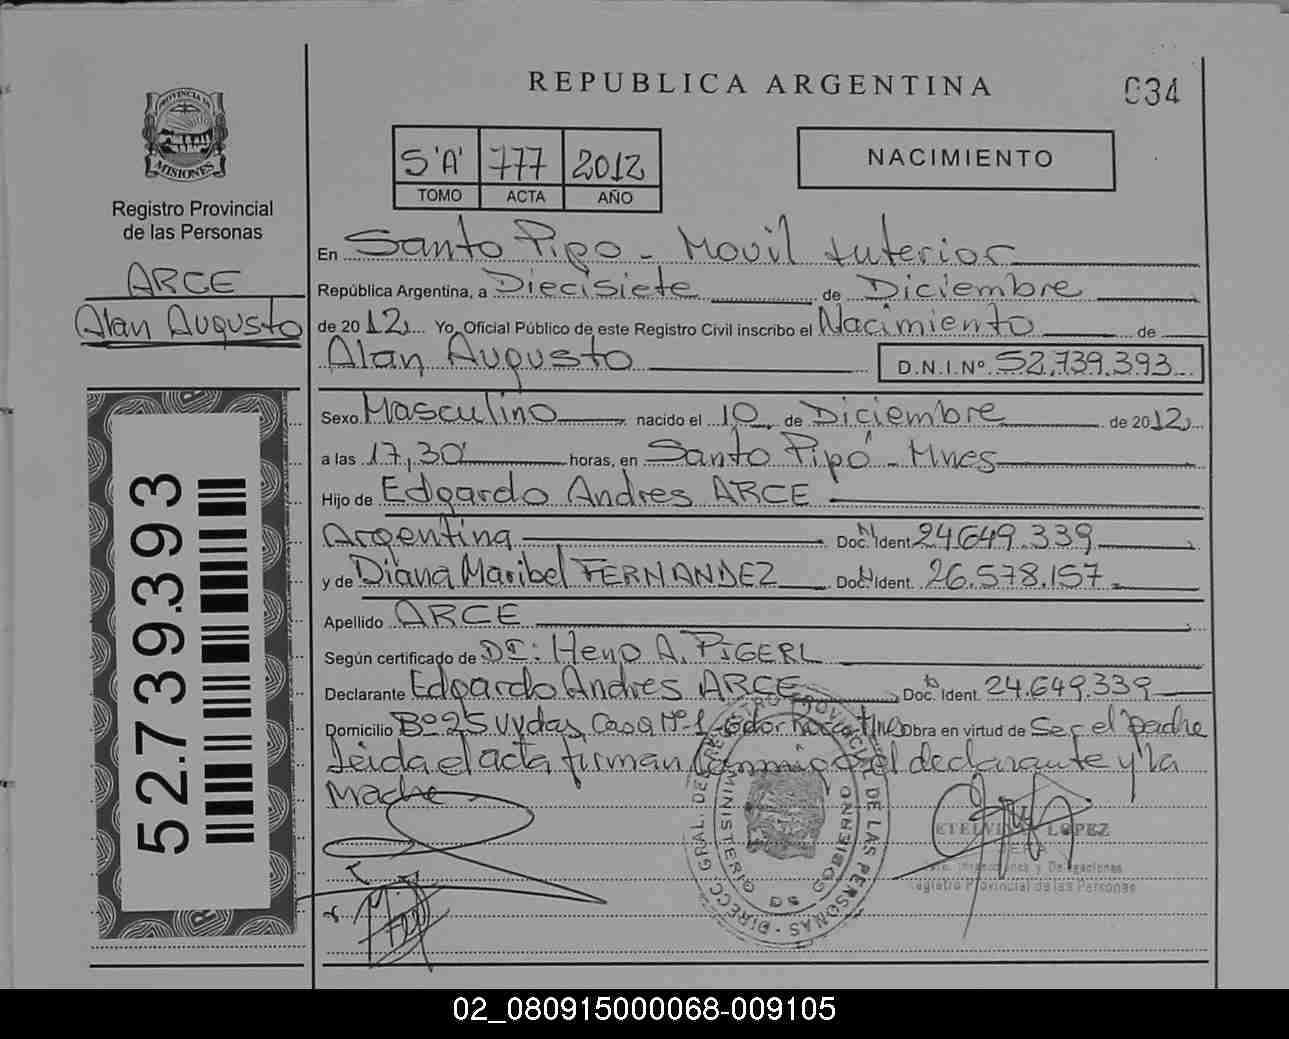 REPUBLICA ARGENTINA
034
PROVINCIA DE MISIONES
Registro Provincial
de las Personas
ARCE
Alan Augusto
52.739.393
5'A' 777 2012
TOMO ACTA AÑO
NACIMIENTO
En Santo Pipo - Movil Interior
República Argentina, a Diecisiete de Diciembre
de 2012 Yo, Oficial Público de este Registro Civil inscribo el Nacimiento de
Alan Augusto D.N.I.Nº 52.739.393
Sexo Masculino nacido el 10 de Diciembre de 2012
a las 17,30' horas, en Santo Pipó - Mnes
Hijo de Edgardo Andres ARCE
Argentina Doc. Ident 24649.339
y de Diana Maribel FERNANDEZ Doc. Ident. 26.578.157
Apellido ARCE
Según certificado de Dr: Heno A. PIGERL
Declarante Edgardo Andres ARCE Doc. Ident. 24.649.339
Domicilio Bº 25 Vvdas, Casa Nº 1 Gdor Roca Obra en virtud de Ser el padre
Leida el acta firman conmigo el declarante y la
Madre
DIRECC. GRAL. DE REGISTRO PROVINCIAL DE LAS PERSONAS
MINISTERIO DE GOBIERNO
ETELVINA LOPEZ
JEFA
Registro Provincial de las Personas
02_080915000068-009105